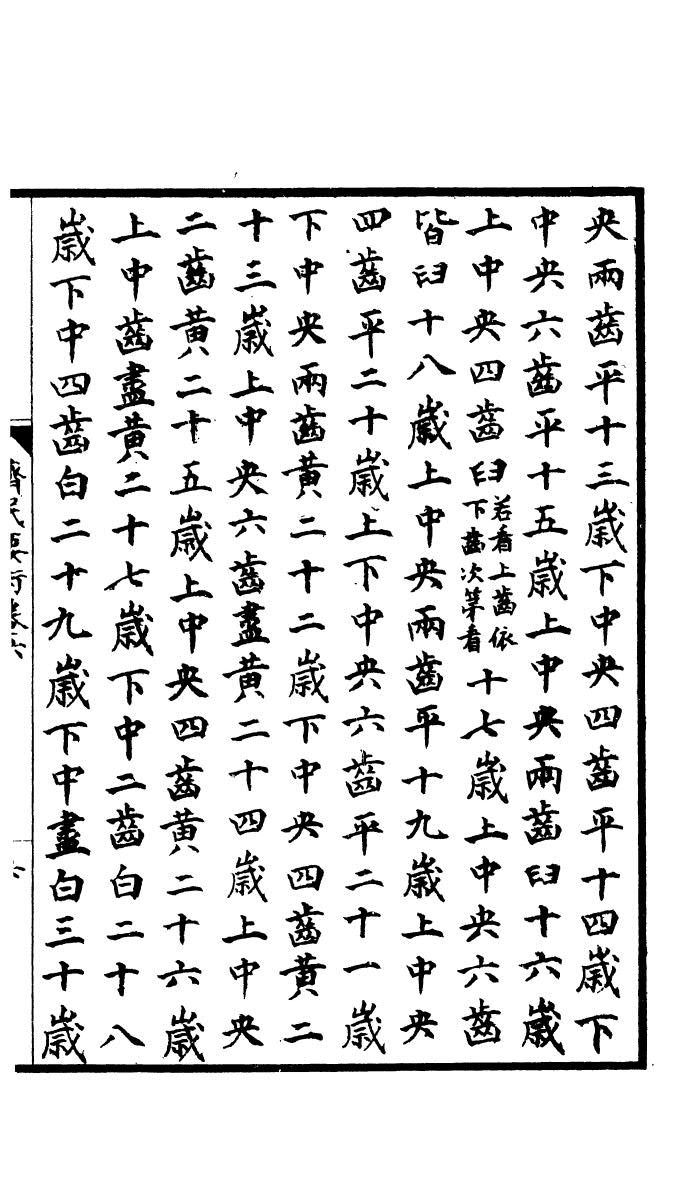 央兩齒平十三歳下中央四齒平十四歳下
中央六齒平十五歳上中央兩齒臼十六歳
上中央四齒臼若看上齒依下齒次第看十七歳上中央六齒
皆臼十八歳上中央兩齒平十九歳上中央
四齒平二十歳上下中央六齒平二十一歳
下中央兩齒黄二十二歳下中央四齒黄二
十三歳上中央六齒盡黄二十四歳上中央
二齒黄二十五歳上中央四齒黄二十六歳
上中齒盡黄二十七歳下中二齒白二十八
歳下中四齒白二十九歳下中盡白三十歳
齊民要術卷六